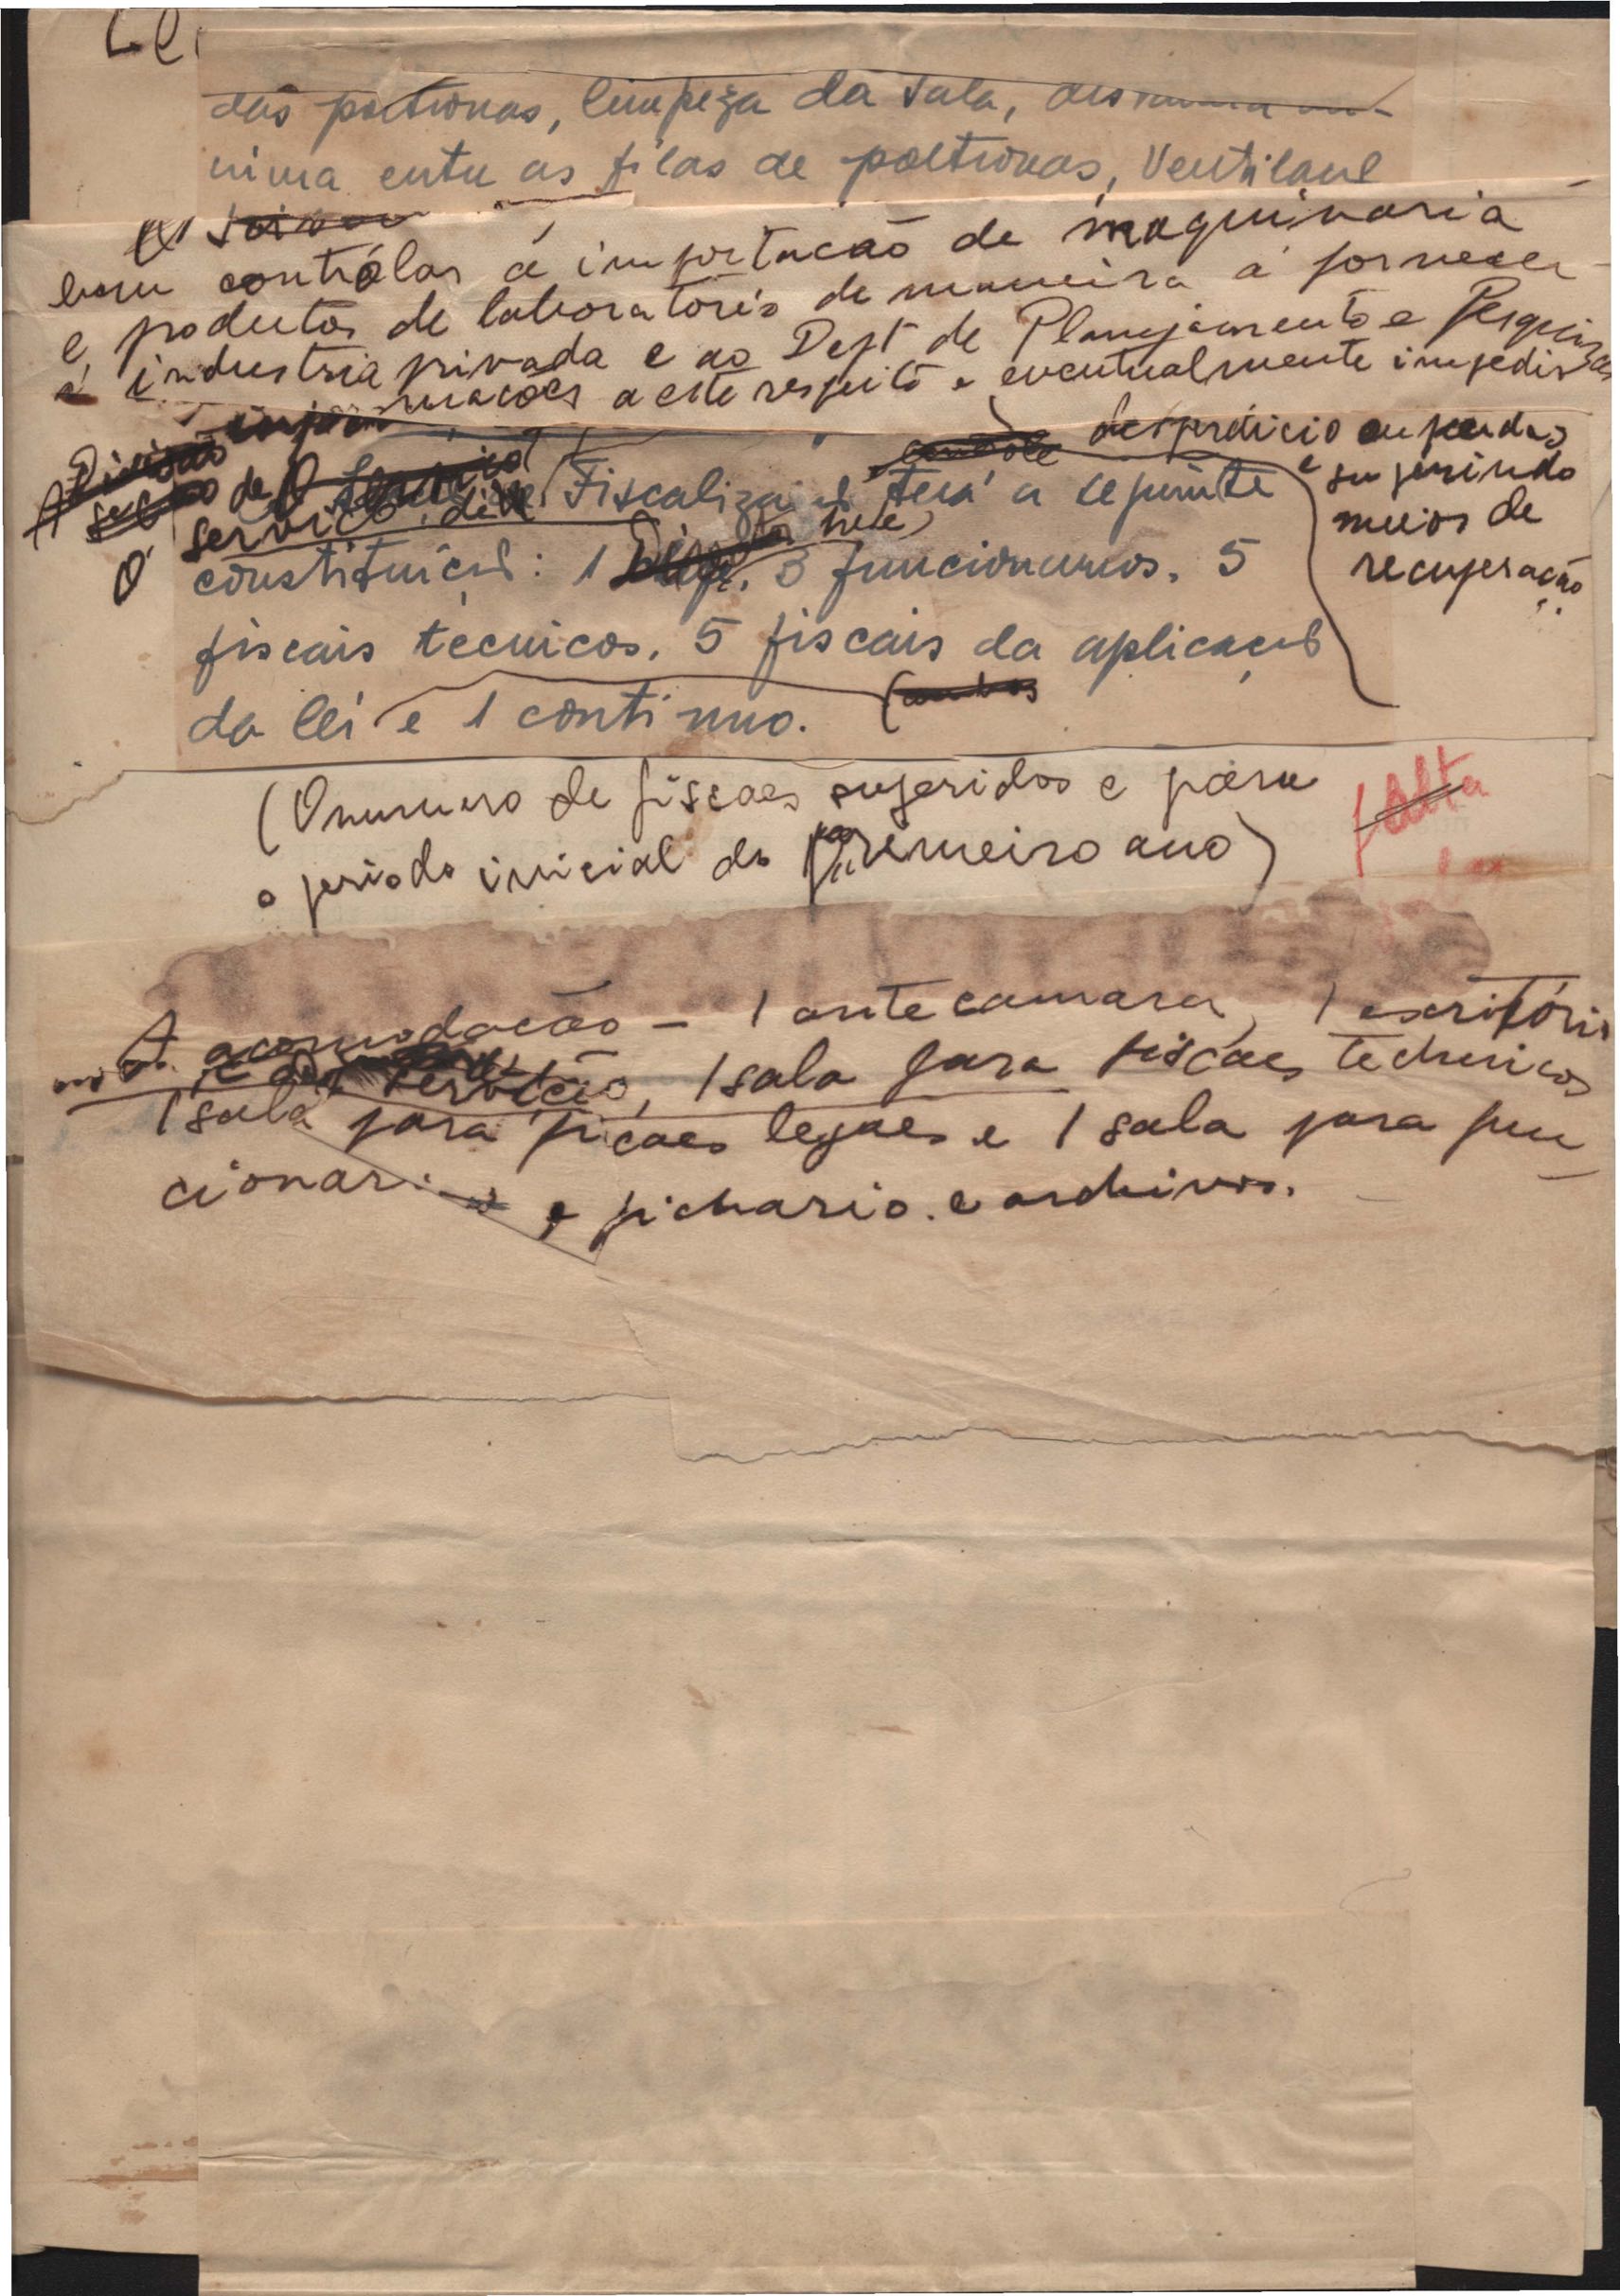 das poltronas, limpeza da sala,
nima entre as filas de poltronas, Ventilaçãl
bem contrólar a importação de maquinaria
e produtos de laboratorio de maneira a fornecer
a industria privada e ao Dept de Planejamento e Pesquizas
informações a este respeito e eventualmente impedir
desperdicio ou perdas
e sugerindo
meios de
recuperação
O serviço de Fiscalização terá a seguinte
constituição: 1 3 funcionarios. 5
fiscais técnicos. 5 fiscais da aplicação
da lei e 1 continuo.
(O numero de fiscaes sugeridos e para
o periodo inicial do primeiro ano)
falta
A acomodação - 1 antecamara, 1 escritório
1 sala para fiscaes technicos
1 sala para ficaes legaes e 1 sala para fun
cionarios e fichario. e archivos.